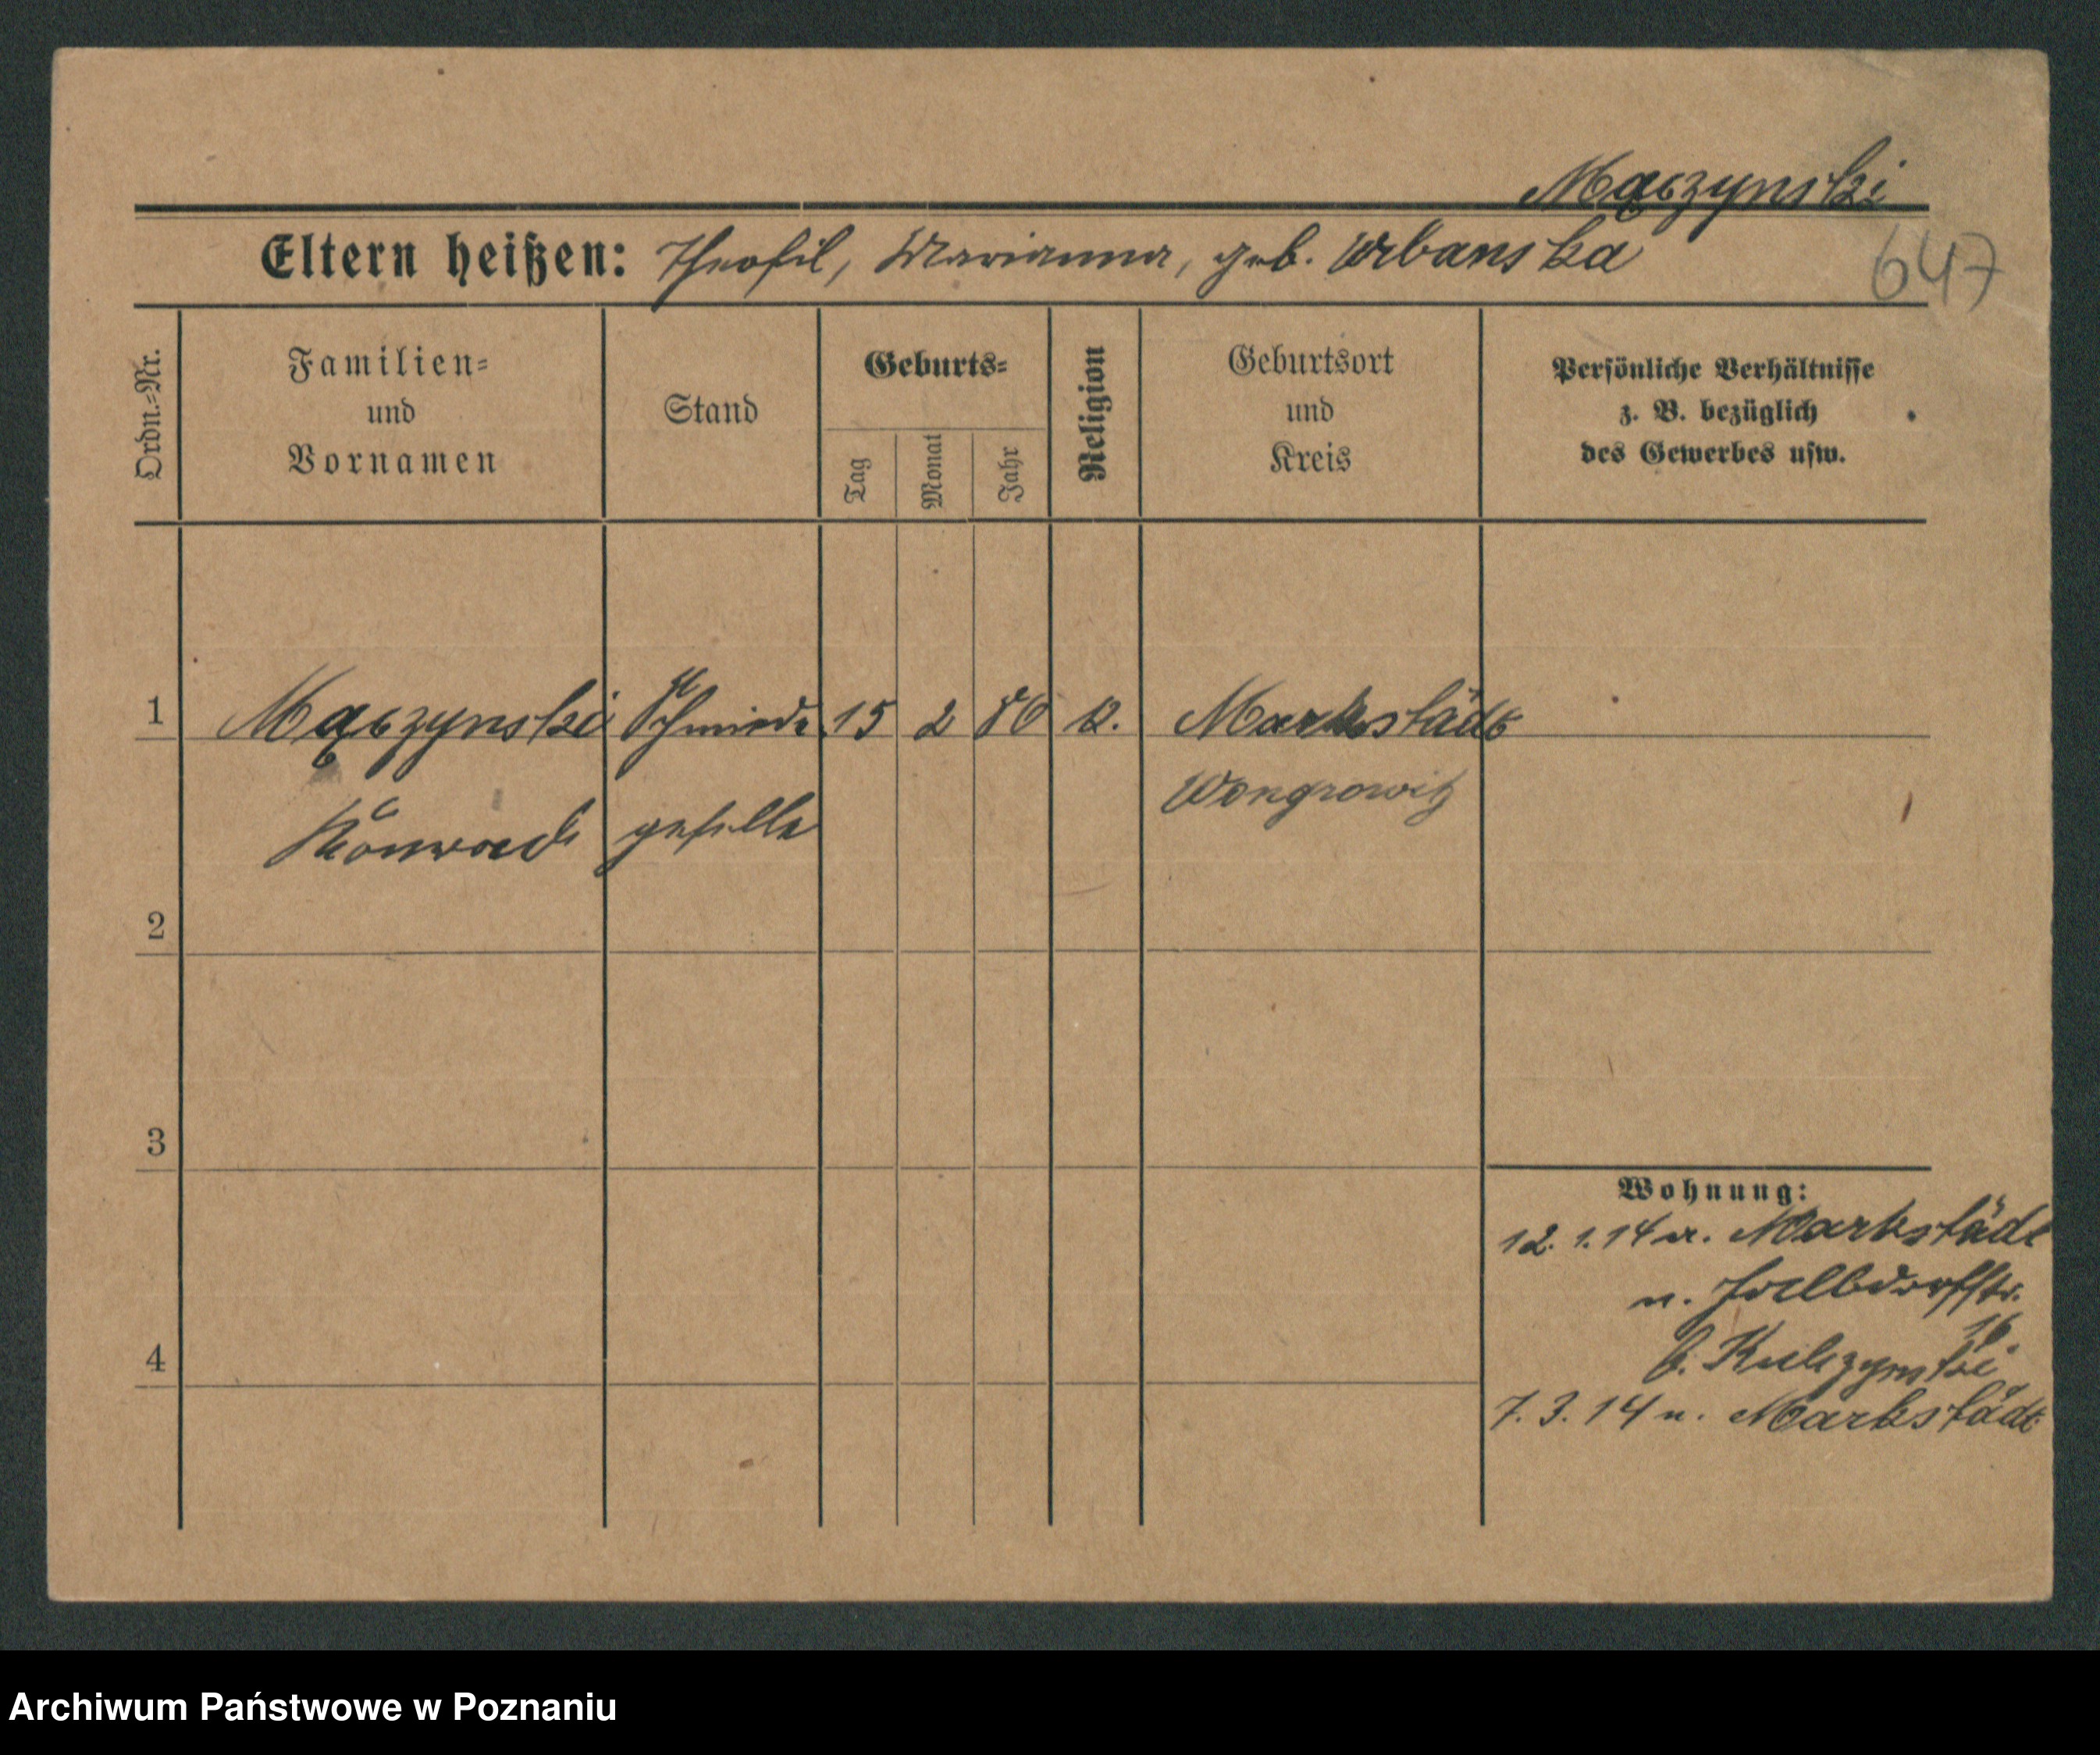 Mączynski
Eltern heißen: Theofil, Marianna, geb. Urbanska
647
Ordn.=Nr.
Familien=
und
Vornamen
Stand
Geburts=
Tag
Monat
Jahr
Religion
Geburtsort
und
Kreis
Persönliche Verhältnisse
z. B. bezüglich
des Gewerbes usw.
1 Mączynski Schmiede 15 2 80 k. Markstädt
Konrad geselle Wongrowitz
2
3
4
Wohnung:
12. 1. 14 a. Markstädt
n.
16
b. Kulczynski
7. 3. 14 n. Markstädt
Archiwum Państwowe w Poznaniu